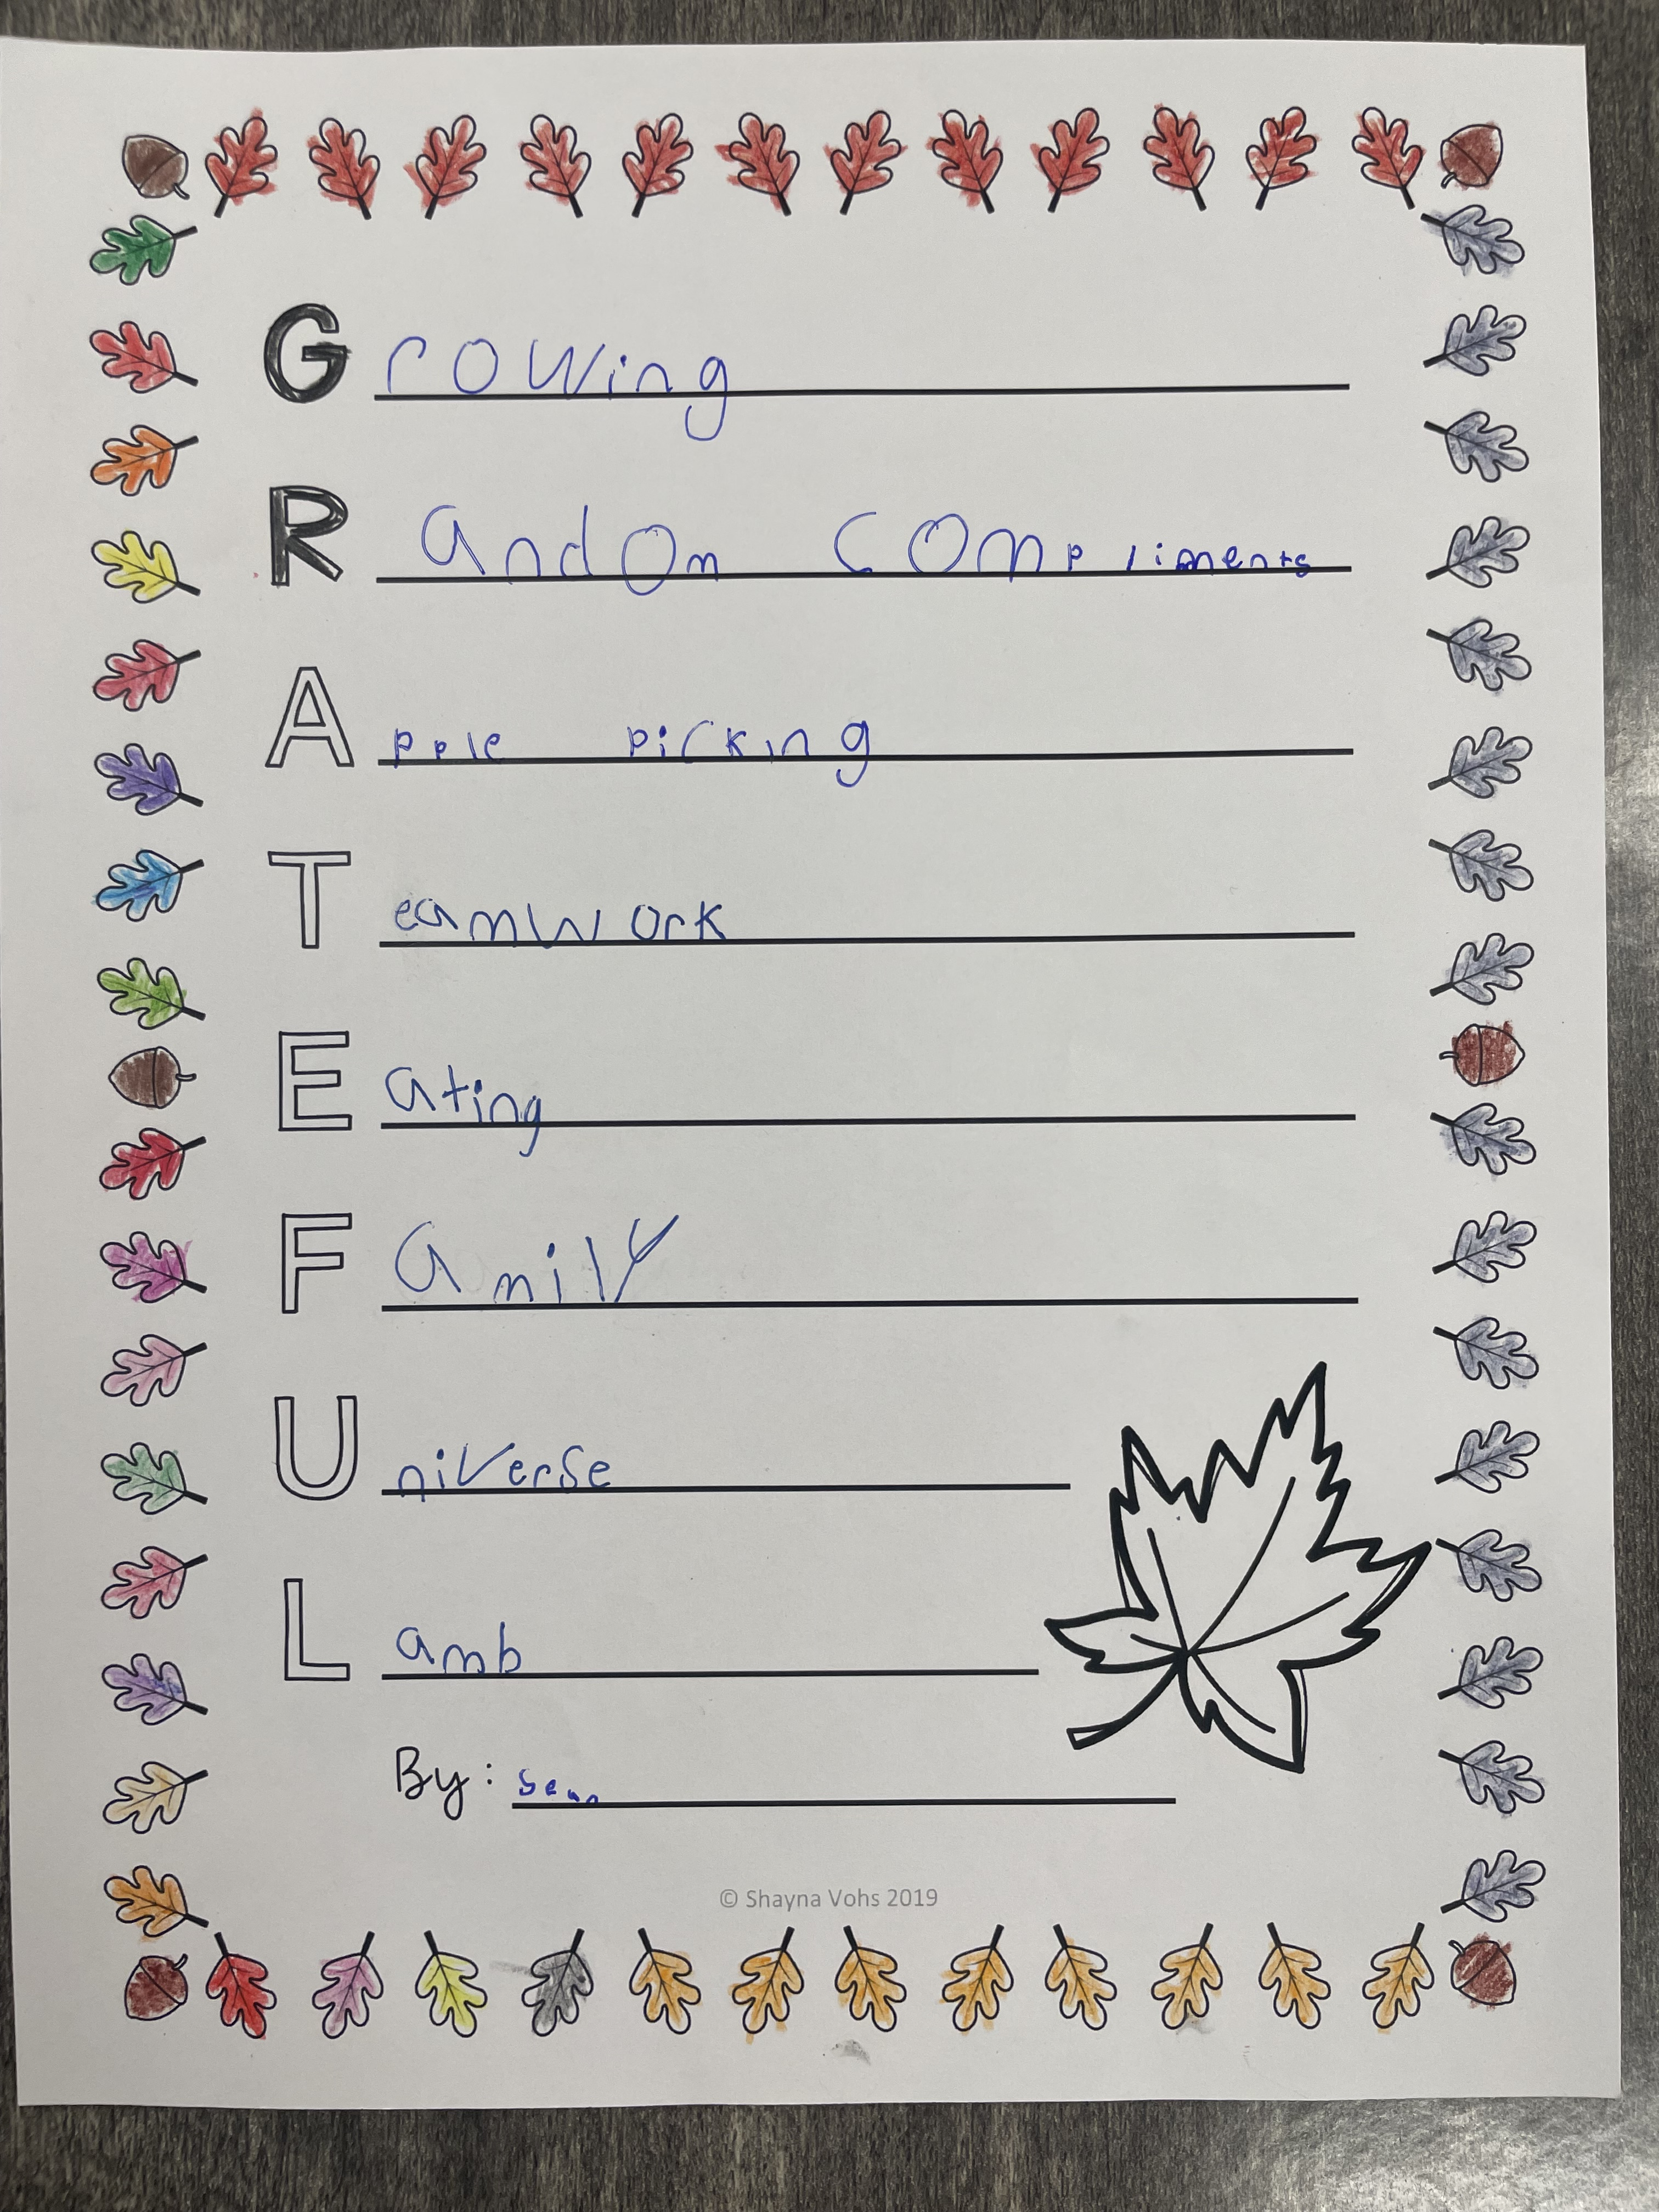 Growing
Random compliments
Apple picking
Teamwork
Eating
Family
Universe
Lamb
By: Sean
© Shayna Vohs 2019